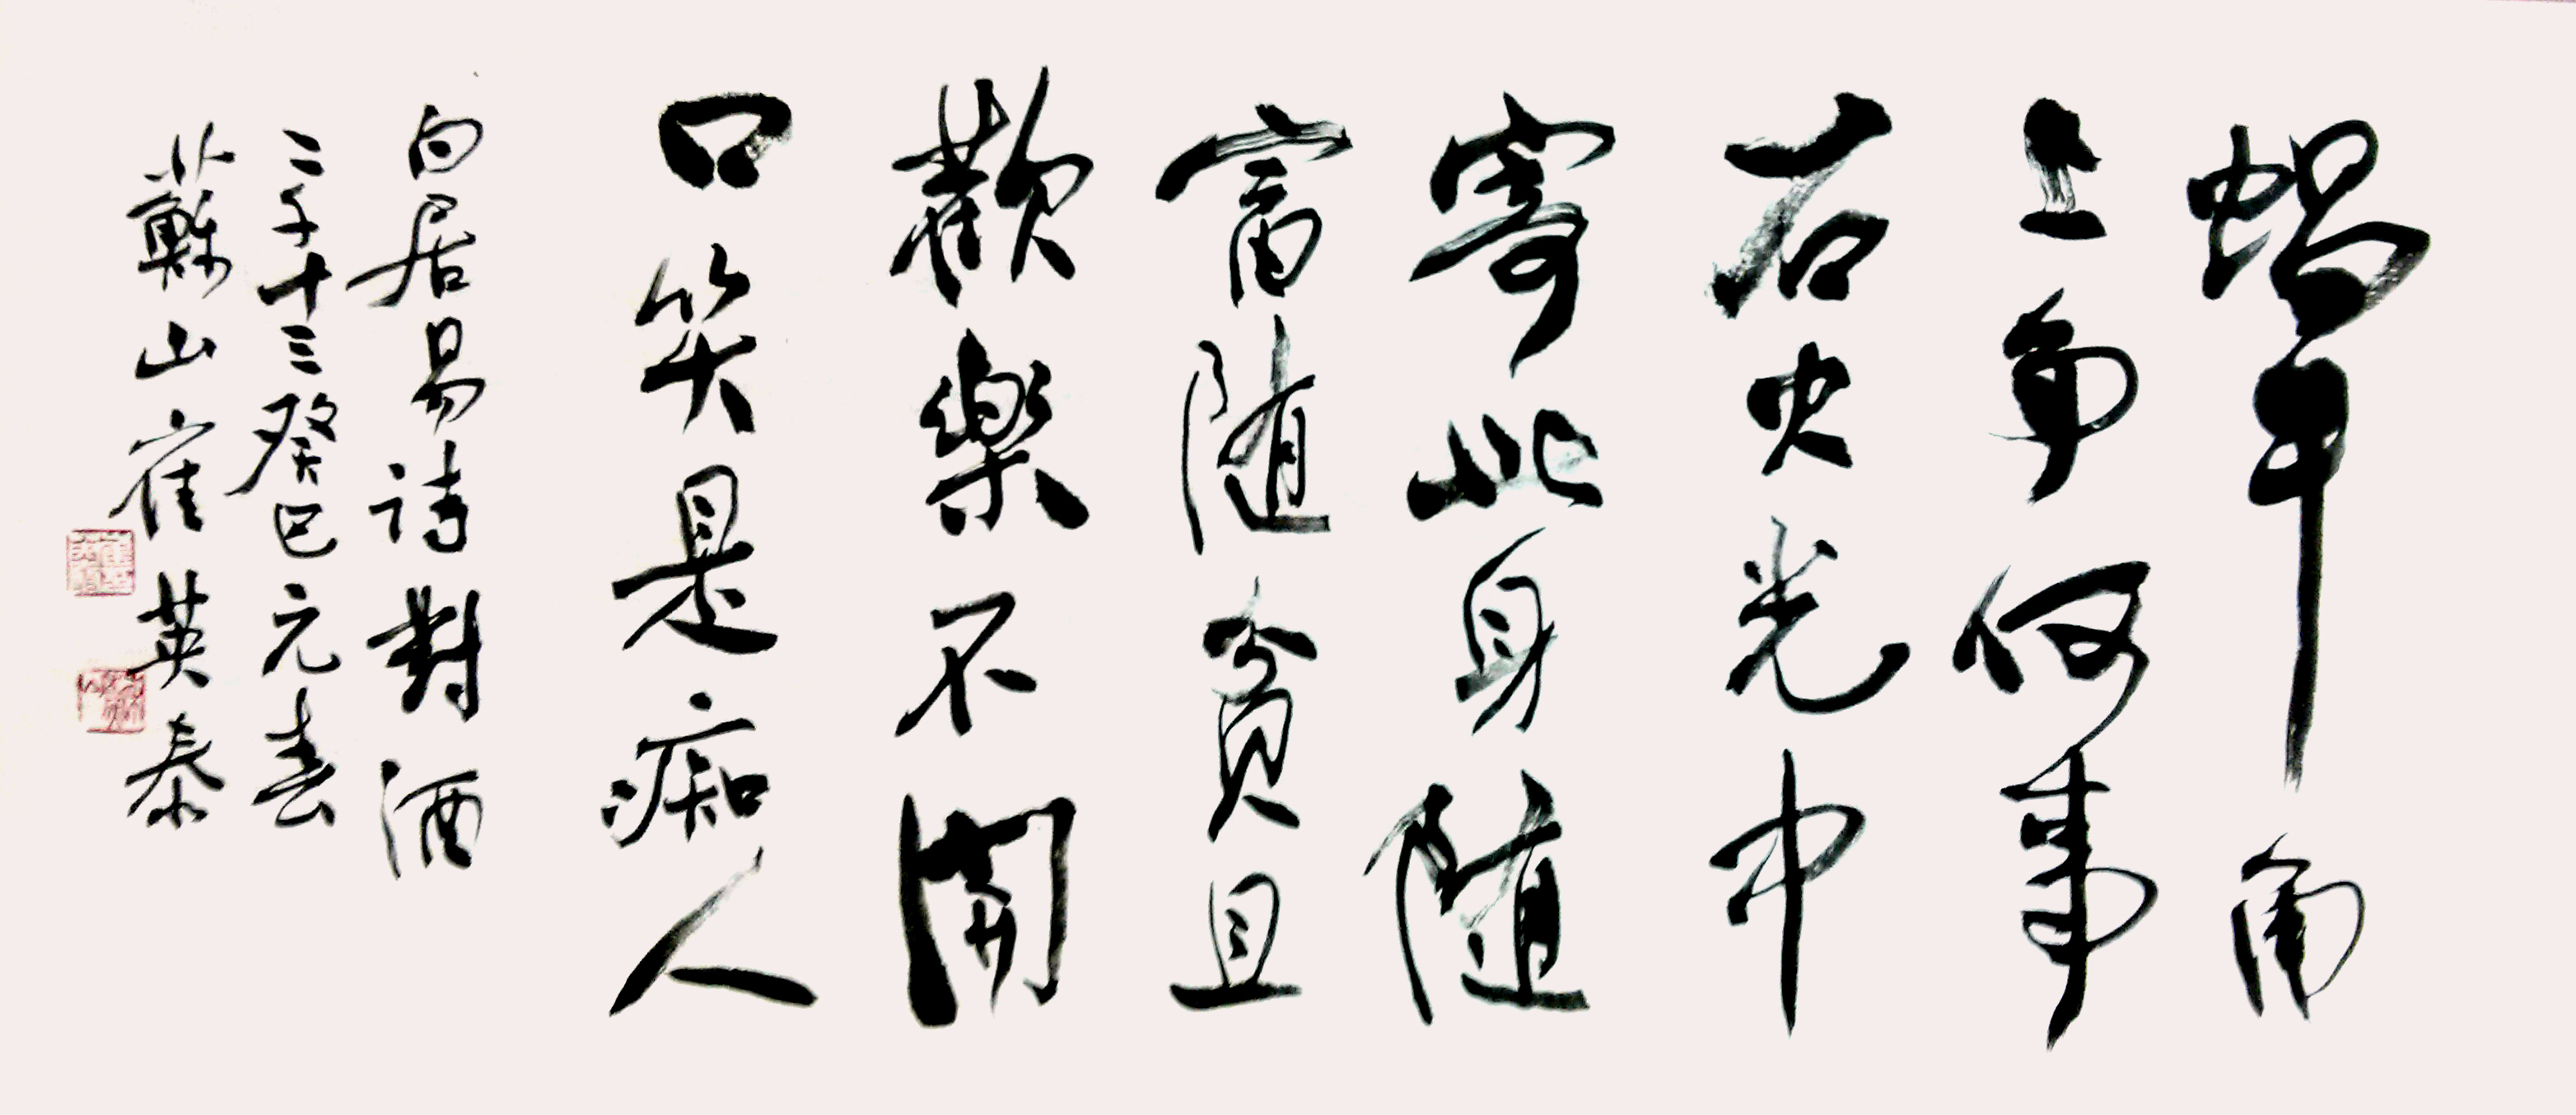 蝸牛角
上争何事
石火光中
寄此身随
富随貧且
歡樂不開
口笑是痴人
白居易詩對酒
二千十三癸巳元春
蘇山崔英泰